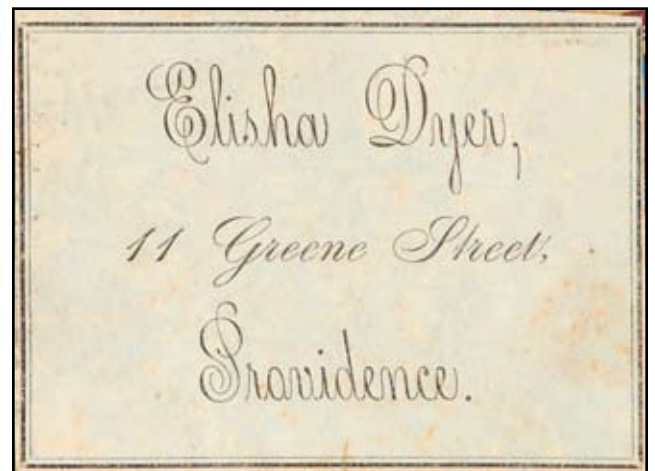 Elisha Dyer,
11 Greene Street,
Providence.